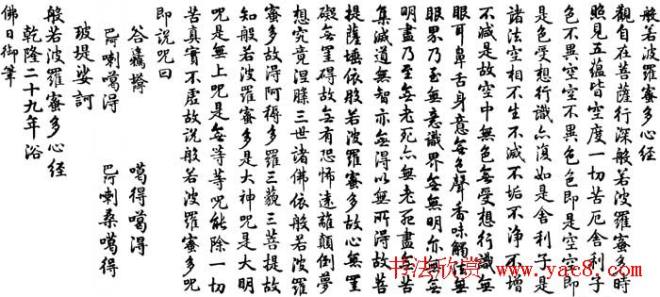 般若波羅蜜多心經
觀自在菩薩行深般若波羅蜜多時
照見五蘊皆空度一切苦厄舍利子
色不異空空不異色色即是空空即
是色受想行識亦復如是舍利子是
諸法空相不生不滅不垢不淨不增
不減是故空中無色無受想行識無
眼耳鼻舌身意無色聲香味觸法無
眼界乃至無意識界無無明亦無無
明盡乃至無老死亦無老死盡無苦
集滅道無智亦無得以無所得故菩
提薩埵依般若波羅蜜多故心無罣
礙無罣礙故無有恐怖遠離顛倒夢
想究竟涅槃三世諸佛依般若波羅
蜜多故得阿耨多羅三藐三菩提故
知般若波羅蜜多是大神咒是大明
咒是無上咒是無等等咒能除一切
苦真實不虛故說般若波羅蜜多咒
即説咒曰
答 噶得噶得
喇噶得 喇桑噶得
玻提娑訶
般若波羅蜜多心經
乾隆二十九年浴
佛日御筆
书法欣赏
www.yac8.com